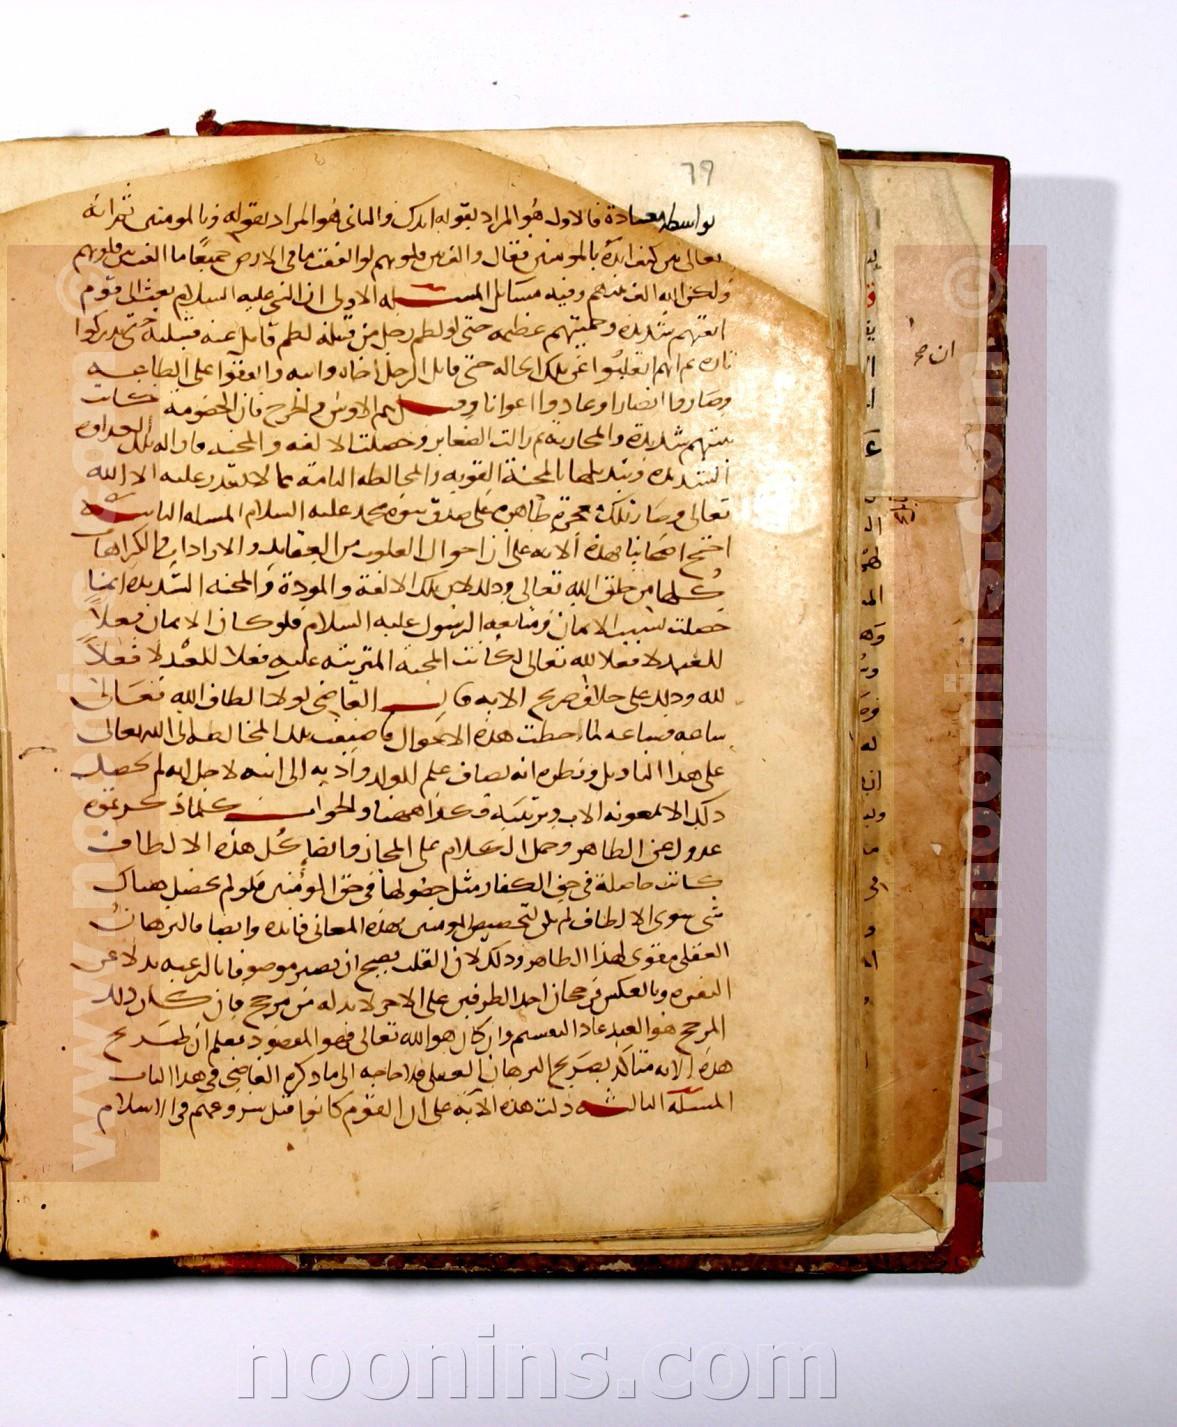 79
بواسطة معتادة فالاول هو المراد بقوله ايدك والثانى هو المراد بقوله وبالمومنين ثم انه
تعالى بين كيف ايده بالمومنين فقال والف بين قلوبهم لو انفقت ما فى الارض جميعًا ما الفت بين قلوبهم
ولكن الله الف بينهم وفيه مسائل المسئلة الاولى ان النبى عليه السلام بعث الى قوم
انفتهم شديدة وحميتهم عظيمة حتى لو لطم رجل من قبيلة لطمة قاتل عنه قبيلته حتى يدركوا
ثاره ثم انهم انقلبوا عن تلك الحالة حتى قاتل الرجل اخاه وابنه واتفقوا على الطاعه
وصاروا انصارا وعادوا اعوانا وقيل هم الاوس والخزرج فان الخصومة كانت
بينهم شديدة والمحاربة ثم زالت الضغاين وحصلت الالفه والمحبه فازالة تلك العداوه
الشديده وتبديلها بالمحبة القويه والمخالطه التامة مما لا يقدر عليه الا الله
تعالى وصارت تلك معجزة ظاهره على صدق نبوه محمد عليه السلام المسله الثانيه
احتج اصحابنا بهذه الايه على ان احوال القلوب من العقايد والارادات والكراهات
كلها من خلق الله تعالى وذلك لان تلك الالفة والمودة والمحبه الشديدة انما
حصلت بسبب الايمان ومتابعه الرسول عليه السلام فلو كان الايمان فعلاً
للعبد لا فعلا لله تعالى لكانت المحبة المترتبه عليه فعلا للعبد لا فعلاً
لله وذلك على خلاف صريح الايه قال القاضى لولا الطاف الله تعالى
ساعه فساعه لما حصلت هذه الاحوال فاضيفت تلك المخالطه الى الله تعالى
على هذا التاويل ونظيره انه يضاف علم الولد وادبه الى ابيه لاجل انه لم يحصل
ذلك الا بمعونه الاب وتربيته فكذا ههنا والجواب كلما ذكرتموه
عدول عن الظاهر وحمل الكلام على المجاز وايضا كل هذه الالطاف
كانت حاصلة فى حق الكفار مثل حصولها فى حق المؤمنين فلو لم يحصل هناك
شى سوى الالطاف لم يكن لتخصيص المومنين بهذه المعانى فايده وايضا فالبرهان
العقلى مقوى لهذا الظاهر وذلك لان القلب يصح ان يصير موصوفا بالرغبه بدلا عن
النفره وبالعكس فرجحان احد الطرفين على الاخر لا بد له من مرجح فان كان ذلك
المرجح هو العبد عاد التقسيم وان كان هو الله تعالى فهو المقصود فعلم ان صريح
هذه الايه متاكد بصريح البرهان العقلى فلا حاجه الى ما ذكره القاضى فى هذا الباب
المسئلة الثالثه دلت هذه الآية على ان القوم كانوا قبل شروعهم فى الاسلام
ان صح
www.noonins.com
www.noonins.com
noonins.com